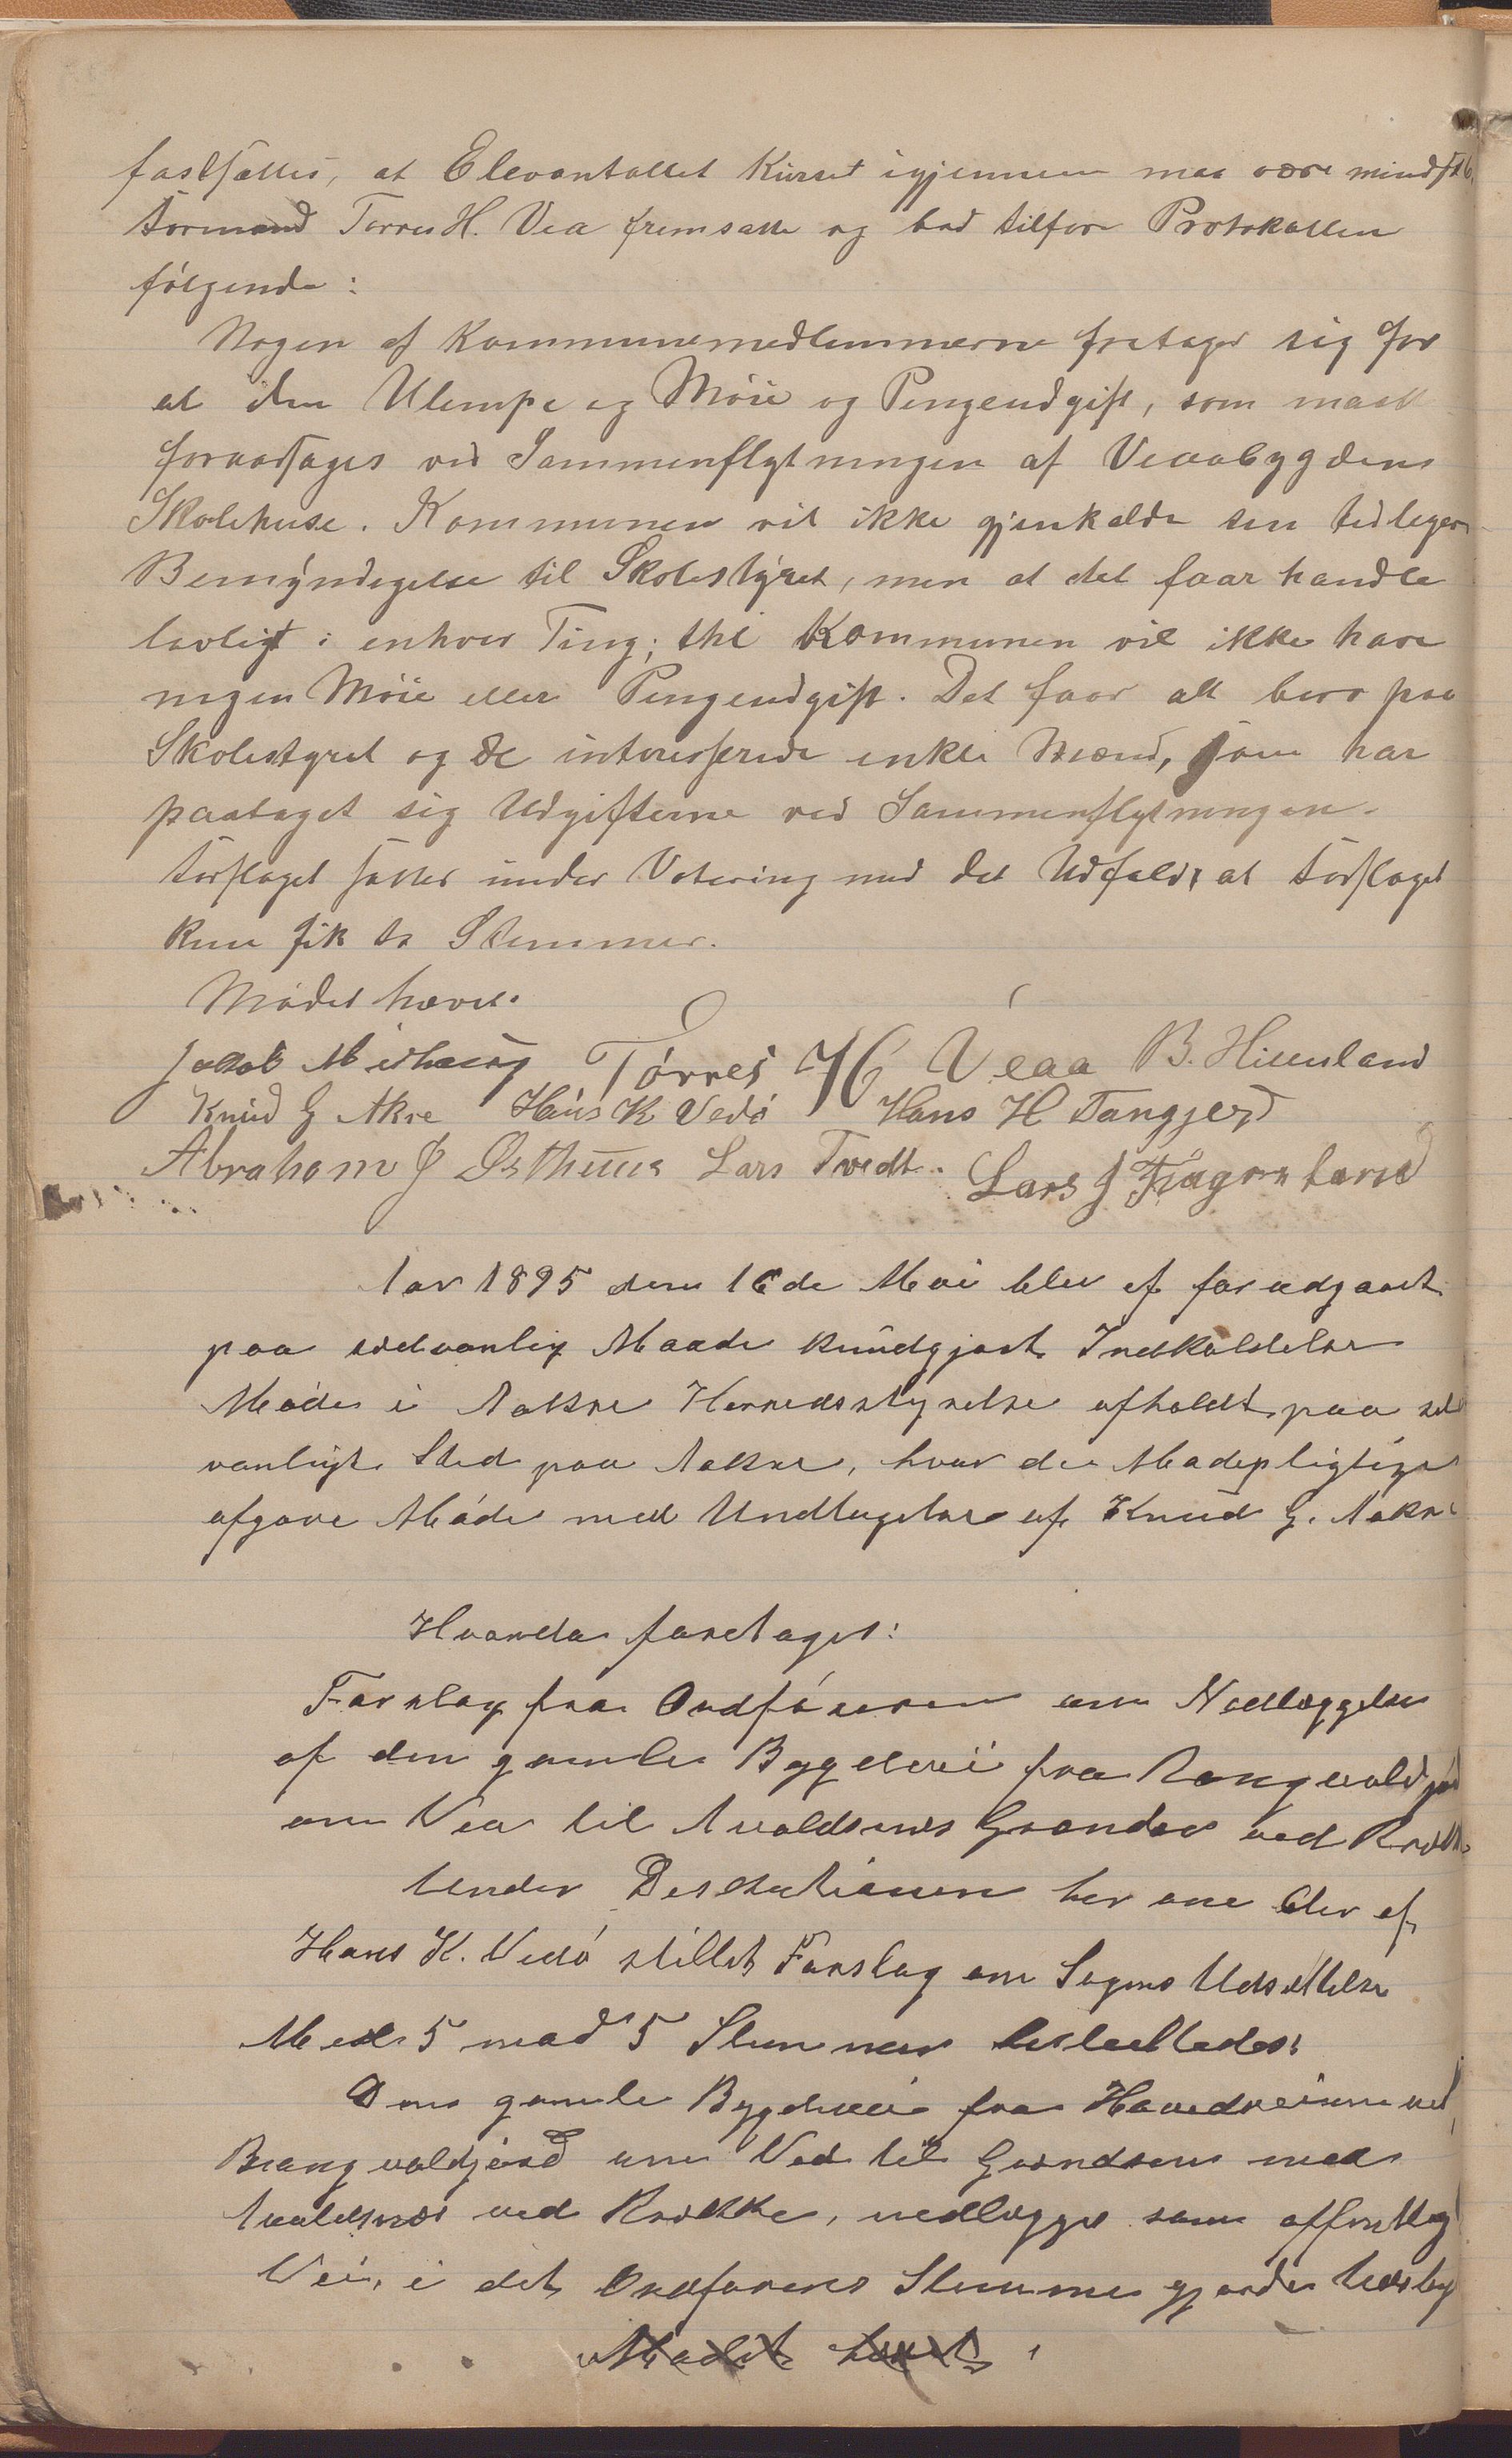 fastsættes, at Elevantallet Kurset igjennem maa være mindst 6.
Formand Torres H. Vea fremsatte og bad tilføre Protokollen
følgende:
Nogen af Kommunemedlemmerne fretager sig for
at den Ulempe og Møie og Pengeudgift, som maatte
foraarsages ved Sammenflytningen af Veaabygdens
Skolehuse. Kommunen vil ikke gjenkalde sin tidligere
Bemyndigelse til Skolestyret, men at det faar handle
lovligt i enhver Ting; thi Kommunen vil ikke have
nogen Møie eller Pengeudgift. Det faar alt bero paa
Skolestyret og de interesserede enkle Mænd, som har
paataget sig Udgifterne ved Sammenflytningen.
Forslaget sattes under Votering med det Udfald, at Forslaget
kun fik to Stemmer.
Mødet hævet.
Jakob Midhaug Tórres H Veaa B. Hillesland
Knud G Akre Hans K Vedø Hans H Tangjerd
Abraham J Østhuus Lars Tvedt. Lars J
Aar 1895 den 16de Mai blev ef forudgaaet
paa sedvanlig Maade kundgjort Indkaldelse
Møde i Aakre Herredsstyrelse afholdt paa sed
vanligt Sted paa Aakre, hvor de Mødepligtige
afgave Møde med Undtagelse af Knud G. Aakre
Hvorda foretaget:
Forslag fra Ordføreren om Nedlæggelse
af den gamle Bygdevei fra Rangvaldjød
om Vea til Avaldsnes Grændse ved Røkke
Under Deskutionen her om blev af
Hans K. Vedø stillet Forslag om Sagens Udsættelse
Med 5 mod 5 Stemmer besluttedes:
Den gamle Bygdevei fra Hovedveien ved
Brangvaldjerd om Vea til Grændsen med
Avaldsnes ved Røkke, nedlægges som offentlig
Vei, i det Ordførens Stemme gjorde Udslag
Mødet hævet.